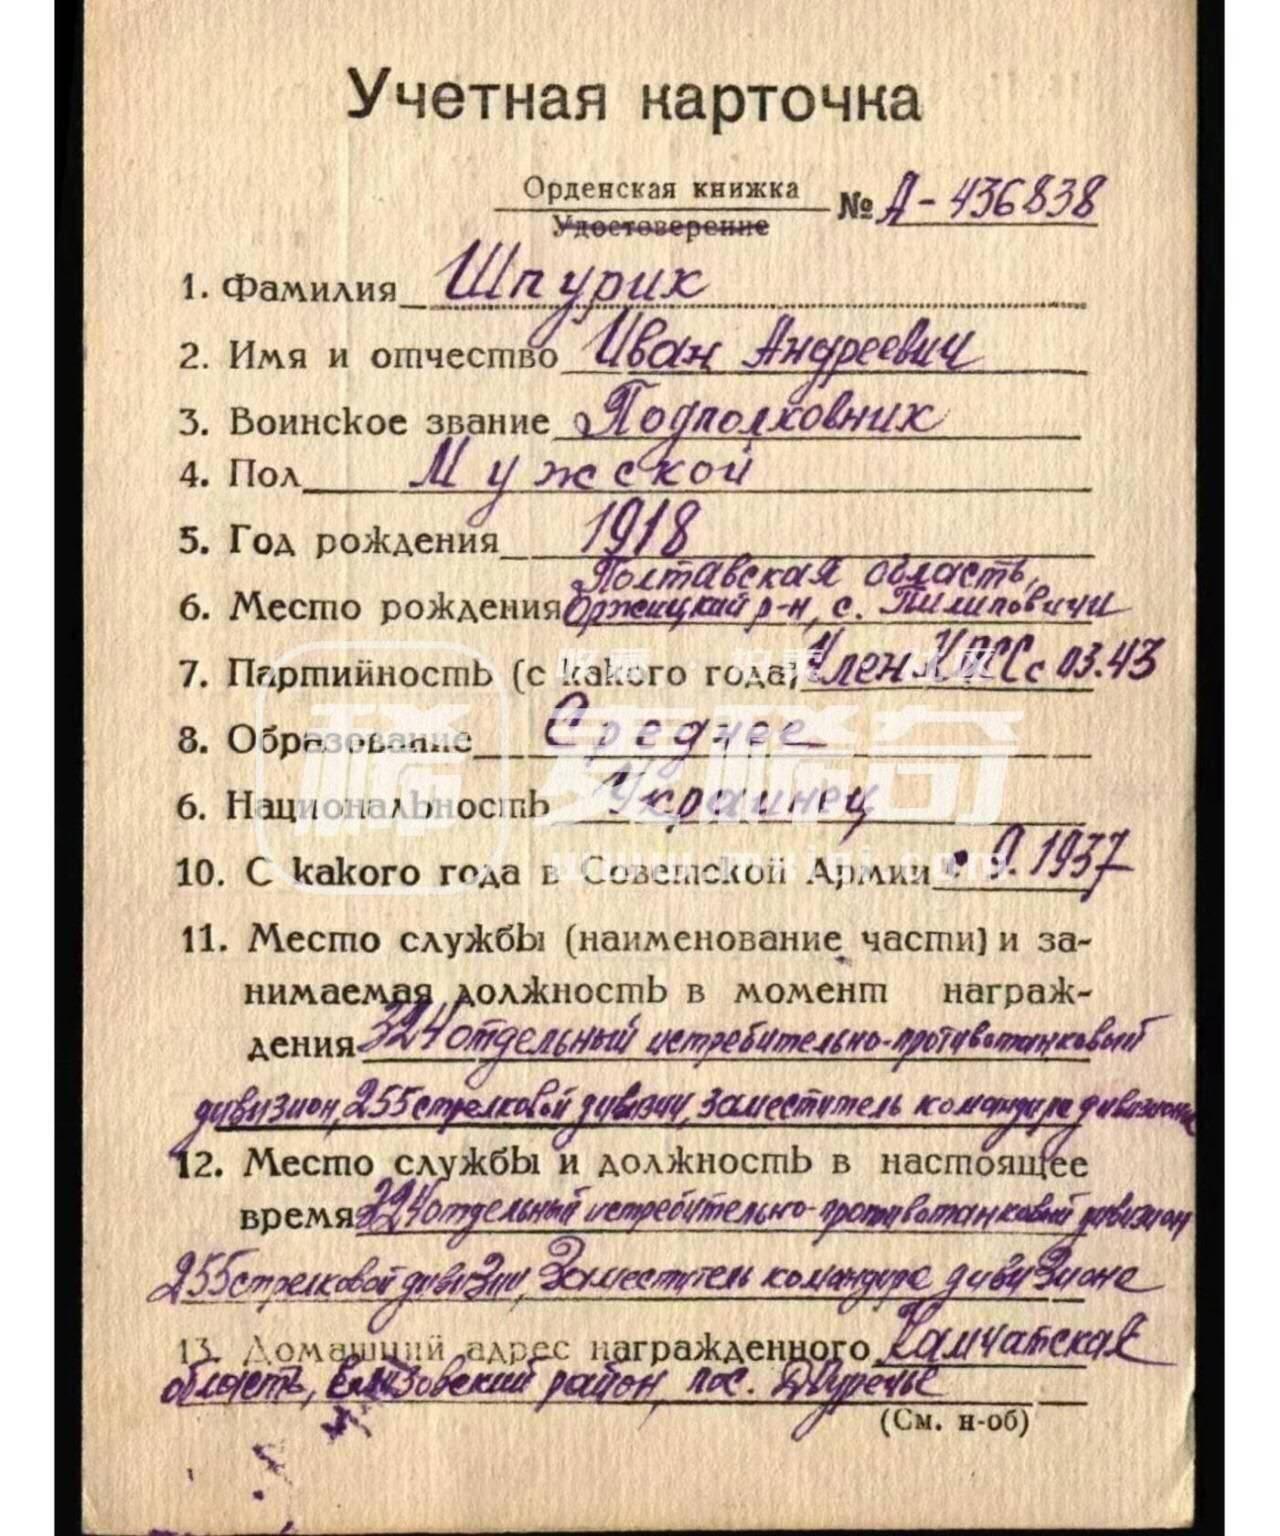 Учетная карточка
Орденская книжка
Удостоверение
№ А-436838
1. Фамилия Шпурик
2. Имя и отчество Иван Андреевич
3. Воинское звание Подполковник
4. Пол Мужской
5. Год рождения 1918
Полтавская область,
6. Место рождения Оржицкий р-н, с. Пилиповичи
7. Партийность (с какого года) Член КПСС с 03.43
8. Образование Среднее
6. Национальность Украинец
10. С какого года в Советской Армии 9.1937
11. Место службы (наименование части) и за-
нимаемая должность в момент награж-
дения 324 отдельный истребительно-противотанковый
дивизион, 255 стрелковой дивизии, заместитель командира дивизиона
12. Место службы и должность в настоящее
время 324 отдельный истребительно-противотанковый дивизион
255 стрелковой дивизии, Заместитель командира дивизиона
13. Домашний адрес награжденного Камчатская
область, Елизовский район, пос. Двуречье
(См. н-об)
稀奇